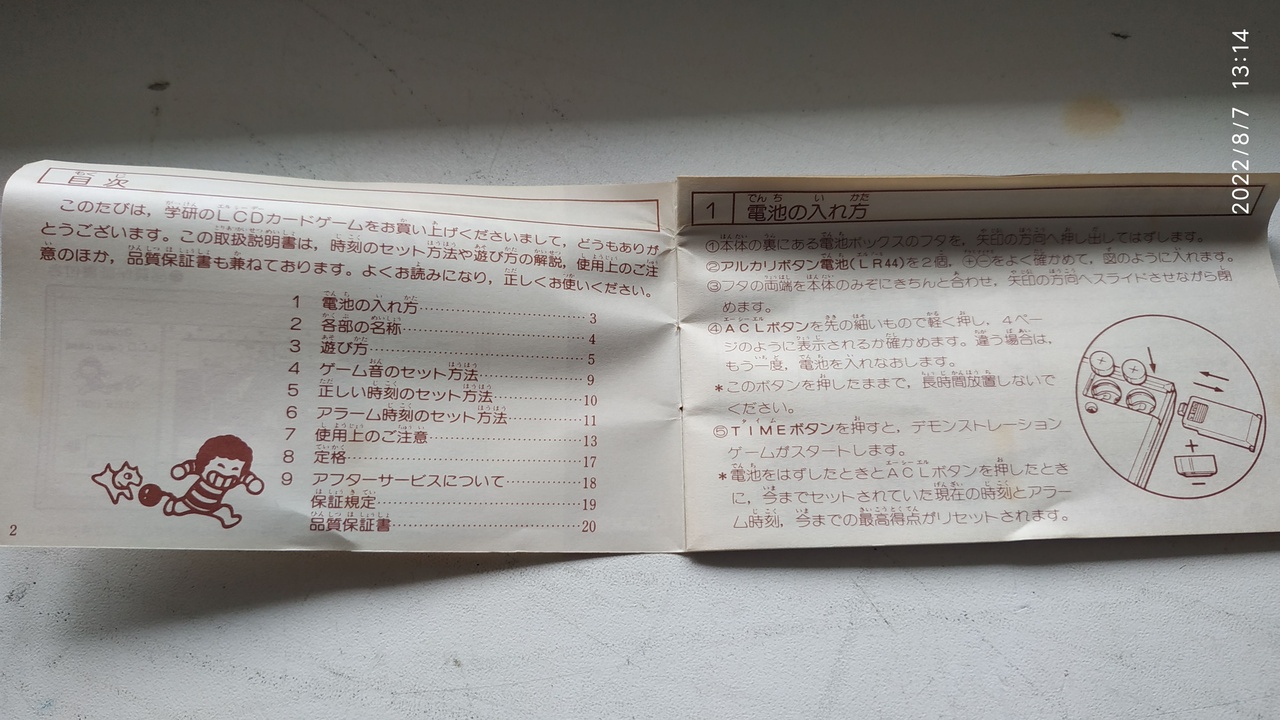 目次
このたびは，学研のLCDカードゲームをお買い上げくださいまして，どうもありが
とうございます。この取扱説明書は，時刻のセット方法や遊び方の解説，使用上のご注
意のほか，品質保証書も兼ねております。よくお読みになり，正しくお使いください。
1 電池の入れ方 3
2 各部の名称 4
3 遊び方 5
4 ゲーム音のセット方法 9
5 正しい時刻のセット方法 10
6 アラーム時刻のセット方法 11
7 使用上のご注意 13
8 定格 17
9 アフターサービスについて 18
保証規定 19
品質保証書 20
2
1 電池の入れ方
①本体の裏にある電池ボックスのフタを，矢印の方向へ押し出してはずします。
②アルカリボタン電池(LR44)を2個，⊕⊖をよく確かめて，図のように入れます。
③フタの両端を本体のみぞにきちんと合わせ，矢印の方向へスライドさせながら閉
めます。
④ACLボタンを先の細いもので軽く押し，4ペー
ジのように表示されるか確かめます。違う場合は，
もう一度，電池を入れなおします。
*このボタンを押したままで，長時間放置しないで
ください。
⑤TIMEボタンを押すと，デモンストレーション
ゲームがスタートします。
*電池をはずしたときとACLボタンを押したとき
に，今までセットされていた現在の時刻とアラー
ム時刻，今までの最高得点がリセットされます。
+
−
2022/8/7 13:14